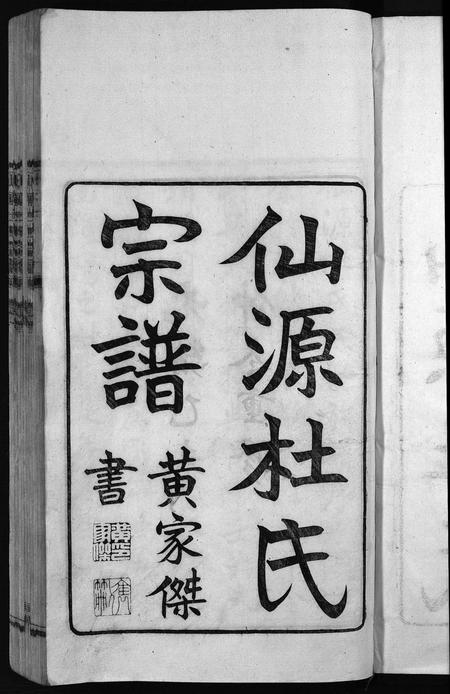 仙源杜氏
宗譜
黄家傑
書